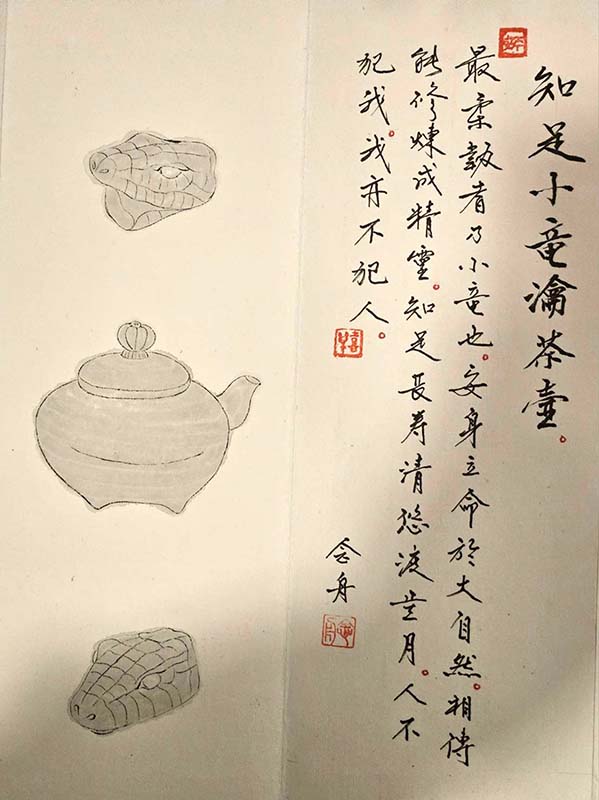 知足小竜瀹茶壺。
最柔毅者乃小竜也。安身立命於大自然。相傳
能修煉成精霊。知足長寿清悠渡岁月。人不
犯我。我亦不犯人。
念舟